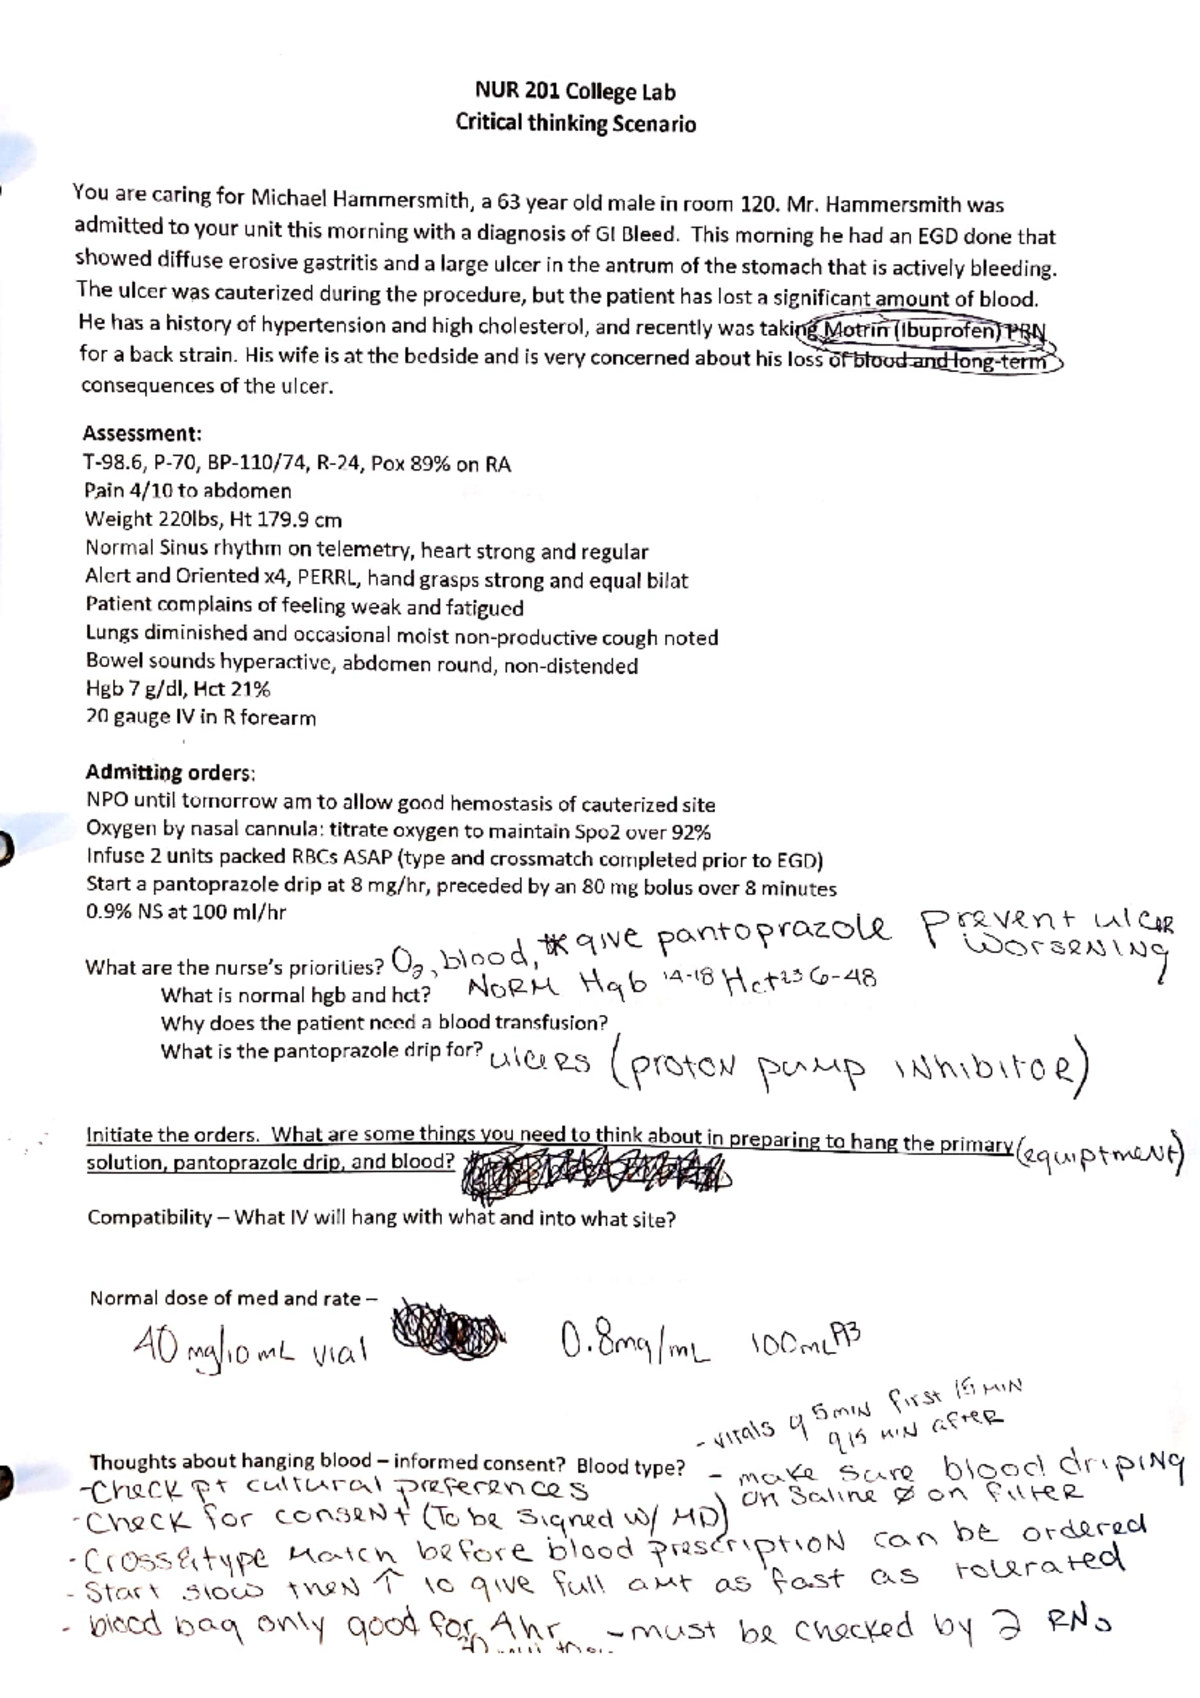 NUR 201 College Lab
Critical thinking Scenario
You are caring for Michael Hammersmith, a 63 year old male in room 120. Mr. Hammersmith was
admitted to your unit this morning with a diagnosis of GI Bleed. This morning he had an EGD done that
showed diffuse erosive gastritis and a large ulcer in the antrum of the stomach that is actively bleeding.
The ulcer was cauterized during the procedure, but the patient has lost a significant amount of blood.
He has a history of hypertension and high cholesterol, and recently was taking Motrin (Ibuprofen) PRN
for a back strain. His wife is at the bedside and is very concerned about his loss of blood and long-term
consequences of the ulcer.
Assessment:
T-98.6, P-70, BP-110/74, R-24, Pox 89% on RA
Pain 4/10 to abdomen
Weight 220lbs, Ht 179.9 cm
Normal Sinus rhythm on telemetry, heart strong and regular
Alert and Oriented x4, PERRL, hand grasps strong and equal bilat
Patient complains of feeling weak and fatigued
Lungs diminished and occasional moist non-productive cough noted
Bowel sounds hyperactive, abdomen round, non-distended
Hgb 7 g/dl, Hct 21%
20 gauge IV in R forearm
Admitting orders:
NPO until tomorrow am to allow good hemostasis of cauterized site
Oxygen by nasal cannula: titrate oxygen to maintain Spo2 over 92%
Infuse 2 units packed RBCs ASAP (type and crossmatch completed prior to EGD)
Start a pantoprazole drip at 8 mg/hr, preceded by an 80 mg bolus over 8 minutes
0.9% NS at 100 ml/hr
What are the nurse's priorities? O₂, blood, give pantoprazole prevent ulcer
worsening
What is normal hgb and hct? Norm Hgb 14-18 Hct 36-48
Why does the patient need a blood transfusion?
What is the pantoprazole drip for? ulcers (proton pump inhibitor)
Initiate the orders. What are some things you need to think about in preparing to hang the primary (equiptment)
solution, pantoprazole drip, and blood?
Compatibility – What IV will hang with what and into what site?
Normal dose of med and rate –
40 mg/10 mL vial 0.8mg/mL 100mL
- vitals q 5min first 15 min
q15 min after
Thoughts about hanging blood – informed consent? Blood type? - make sure blood driping
-Check pt cultural preferences on saline Ø on filter
-Check for consent (To be signed w/ MD)
-Cross&type match before blood prescription can be ordered
-Start slow then ↑ to give full amt as fast as tolerated
- blood bag only good for 4hr -must be checked by 2 RNs